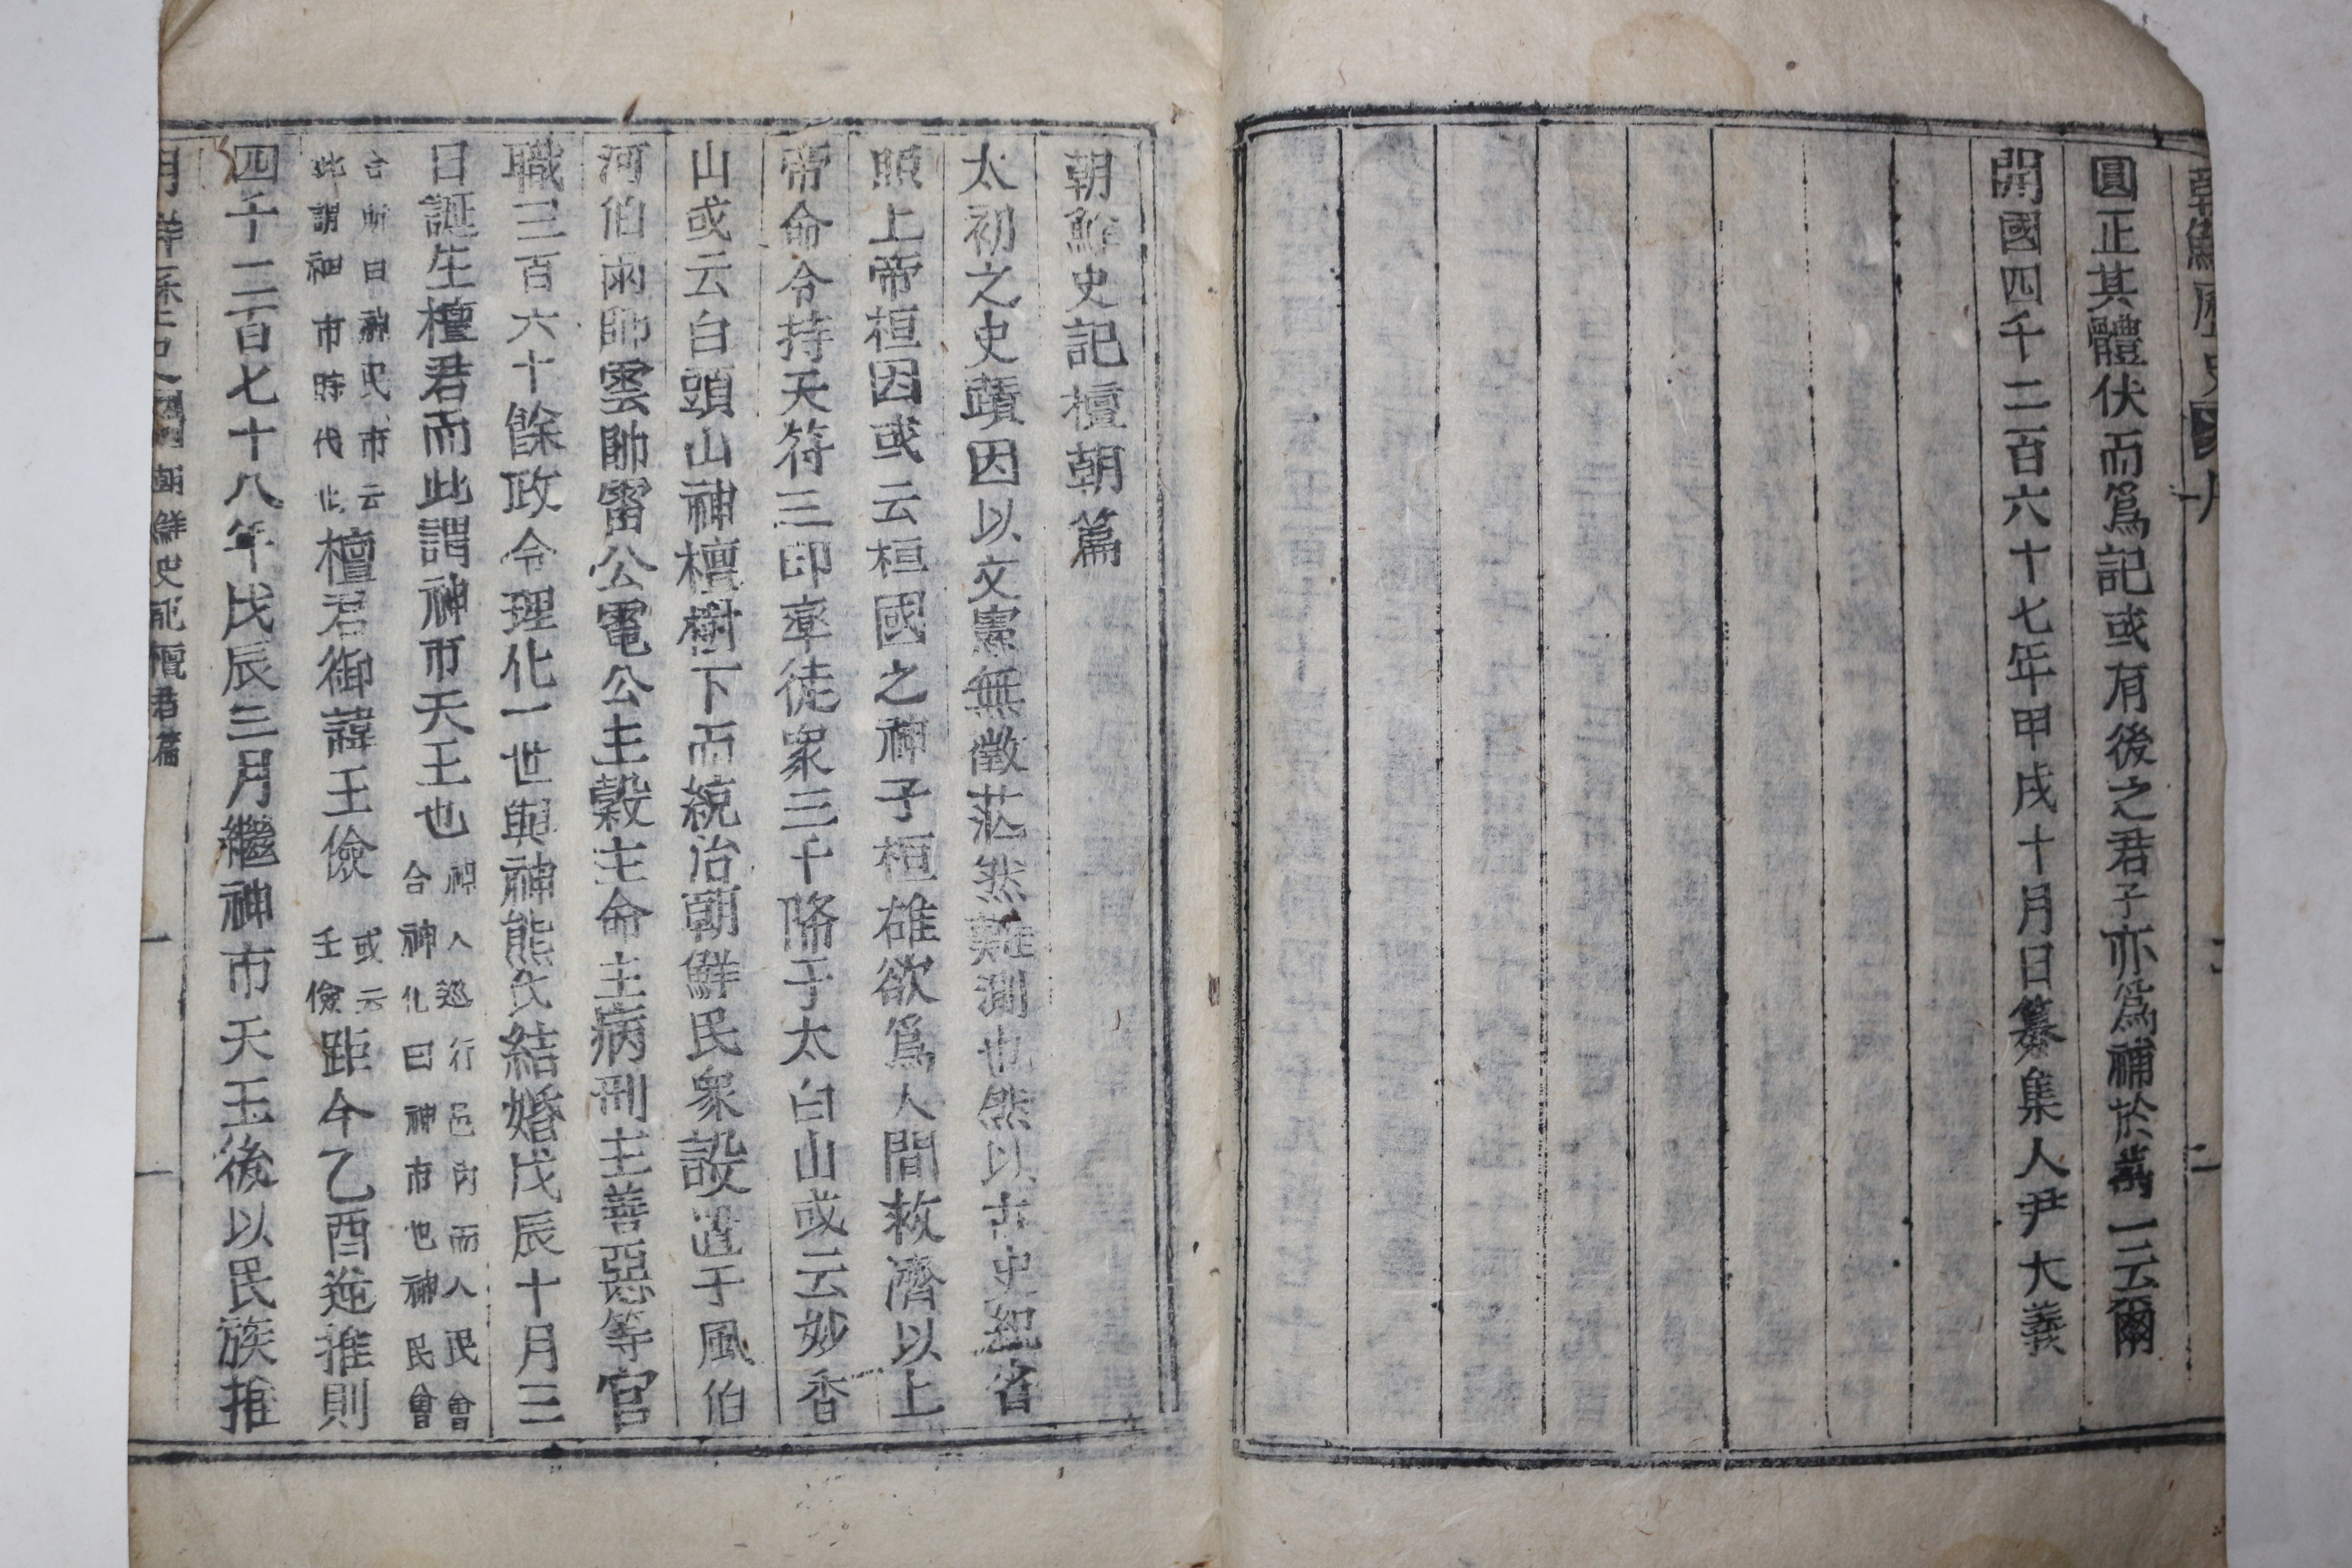 圓正其體伏而爲記或有後之君子亦爲補於萬一云爾
開國四千二百六十七年甲戌十月日纂集人尹大義
朝鮮史記檀朝篇
太初之史蹟因以文憲無徵茫然難測也然以古史紀省
照上帝桓因或云桓國之神子桓雄欲爲人間救濟以上
帝命令持天符三印率徒衆三千降于太白山或云妙香
山或云白頭山神檀樹下而統治朝鮮民衆設置于風伯
河伯雨師雲帥雷公電公主穀主命主病刑主善惡等官
職三百六十餘政令理化一世與神熊氏結婚戊辰十月三
日誕生檀君而此謂神市天王也
神人巡行邑內而人民會
合神化曰神市也神民會
合所曰神民市云
此謂神市時代也
檀君御諱王儉
或云
壬儉
距今乙酉逆推則
四千二百七十八年戊辰三月繼神市天王後以民族推
朝鮮史記檀君篇